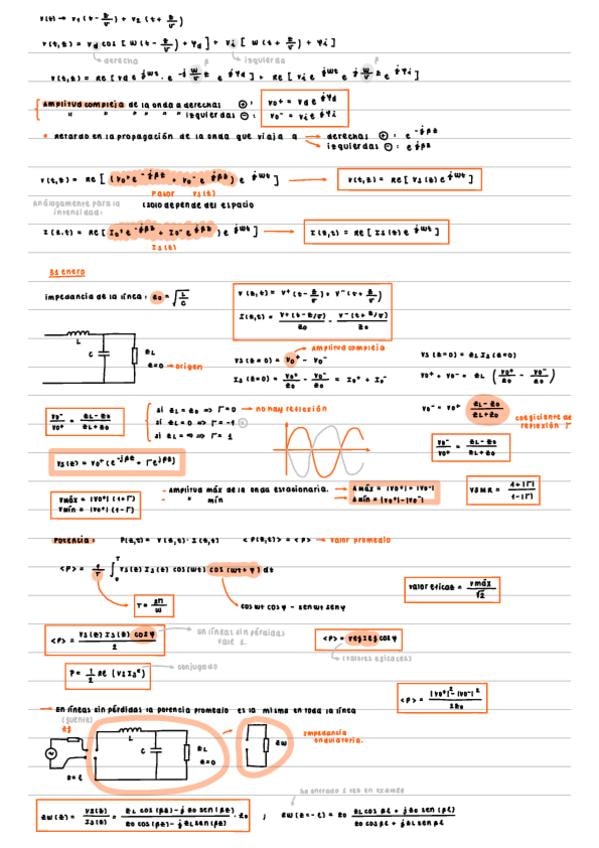 v(t) → v₁(t - z/v) + v₂(t + z/v)
v(t,z) = Vd cos [w(t - z/v) + φd] + Vi [w(t + z/v) + φi]
derecha β izquierda β
v(t,z) = Re [Vd e^jwt · e^-j w/v z e^jφd] + Re [Vi e^jwt e^j w/v z e^jφi]
Amplitud compleja de la onda a derechas ⊕: Vo⁺ = Vd e^jφd
" " " " " izquierdas ⊖: Vo⁻ = Vi e^jφi
* Retardo en la propagación de la onda que viaja a → derechas ⊕: e^-jβz
→ izquierdas ⊖: e^jβz
v(t,z) = Re [(Vo⁺ e^-jβz + Vo⁻ e^jβz) e^jwt] → v(t,z) = Re [Vs(z) e^jwt]
Fasor Vs(z)
Análogamente para la intensidad: (solo depende del espacio
I(z,t) = Re [(Io⁺ e^-jβz + Io⁻ e^jβz) e^jwt] → I(z,t) = Re [Is(z) e^jwt]
Is(z)
31 enero
impedancia de la línea: Zo = √(L/C)
V(z,t) = V⁺(t - z/v) + V⁻(t + z/v)
I(z,t) = V⁺(t - z/v)/Zo - V⁻(t + z/v)/Zo
L C ZL
z=0 → origen
Amplitud compleja
Vs(z=0) = Vo⁺ - Vo⁻ Vs(z=0) = ZL Is(z=0)
Is(z=0) = Vo⁺/Zo - Vo⁻/Zo = Io⁺ + Io⁻ Vo⁺ + Vo⁻ = ZL (Vo⁺/Zo - Vo⁻/Zo)
Vo⁻/Vo⁺ = (ZL - Zo)/(ZL + Zo)
si ZL = Zo => Γ = 0 → no hay reflexión
si ZL = 0 => Γ = -1
si ZL = ∞ => Γ = 1
Vo⁻ = Vo⁺ (ZL - Zo)/(ZL + Zo)
coeficiente de reflexión Γ
Vo⁻/Vo⁺ = (ZL - Zo)/(ZL + Zo)
Vs(z) = Vo⁺(e^-jβz + Γe^jβz)
Vmáx = |Vo⁺| (1+Γ)
Vmín = |Vo⁺| (1-Γ)
- Amplitud máx de la onda estacionaria. → Amáx = |Vo⁺| + |Vo⁻|
- " mín → Amín = |Vo⁺| - |Vo⁻|
VSWR = (1+|Γ|)/(1-|Γ|)
Potencia: P(z,t) = V(z,t) · I(z,t) <P(z,t)> = <P> → valor promedio
<P> = 1/T ∫₀ᵀ Vs(z) Is(z) cos(wt) cos(wt + φ) dt
T = 2π/w
cos wt cos φ - sen wt sen φ
valor eficaz = Vmáx/√2
<P> = Vs(z) Is(z) cos φ / 2
en líneas sin pérdidas vale 1.
<P> = Vef Ief cos φ
(valores eficaces)
P = 1/2 Re (Vs Is*)
conjugado
<P> = (|Vo⁺|² - |Vo⁻|²)/2Zo
→ En líneas sin pérdidas la potencia promedio es la misma en toda la línea
(fuente)
L C ZL
z=0
Zw
Impedancia ondulatoria.
Zw(z) = Vs(z)/Is(z) = (ZL cos(βz) - j Zo sen(βz))/(Zo cos(βz) - j ZL sen(βz)) · Zo ; Zw(z=-ℓ) = Zo (ZL cos βℓ + j Zo sen βℓ)/(Zo cos βℓ + j ZL sen βℓ)